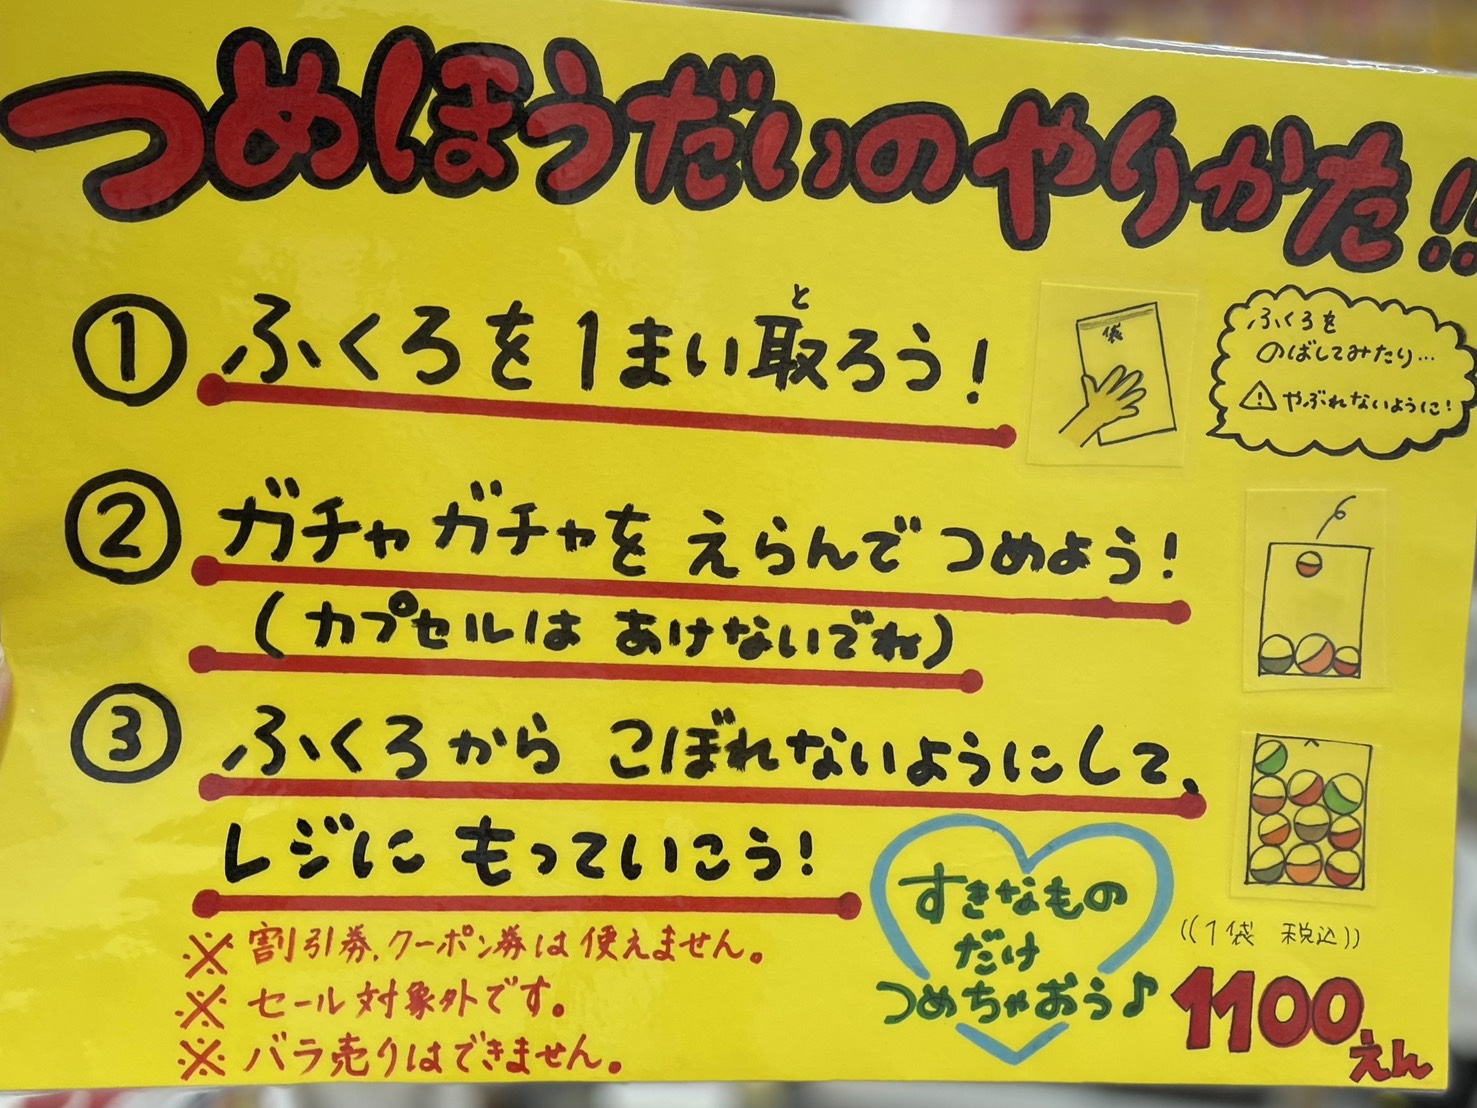 つめほうだいのやりかた!!
① ふくろを1まい取ろう!
と
袋
ふくろを
のばしてみたり…
⚠やぶれないように!
② ガチャガチャを えらんで つめよう!
(カプセルは あけないでね)
③ ふくろから こぼれないようにして、
レジに もっていこう!
すきなもの
だけ
つめちゃおう♪
※ 割引券、クーポン券は使えません。
※ セール対象外です。
※ バラ売りはできません。
((1袋 税込))
1100えん